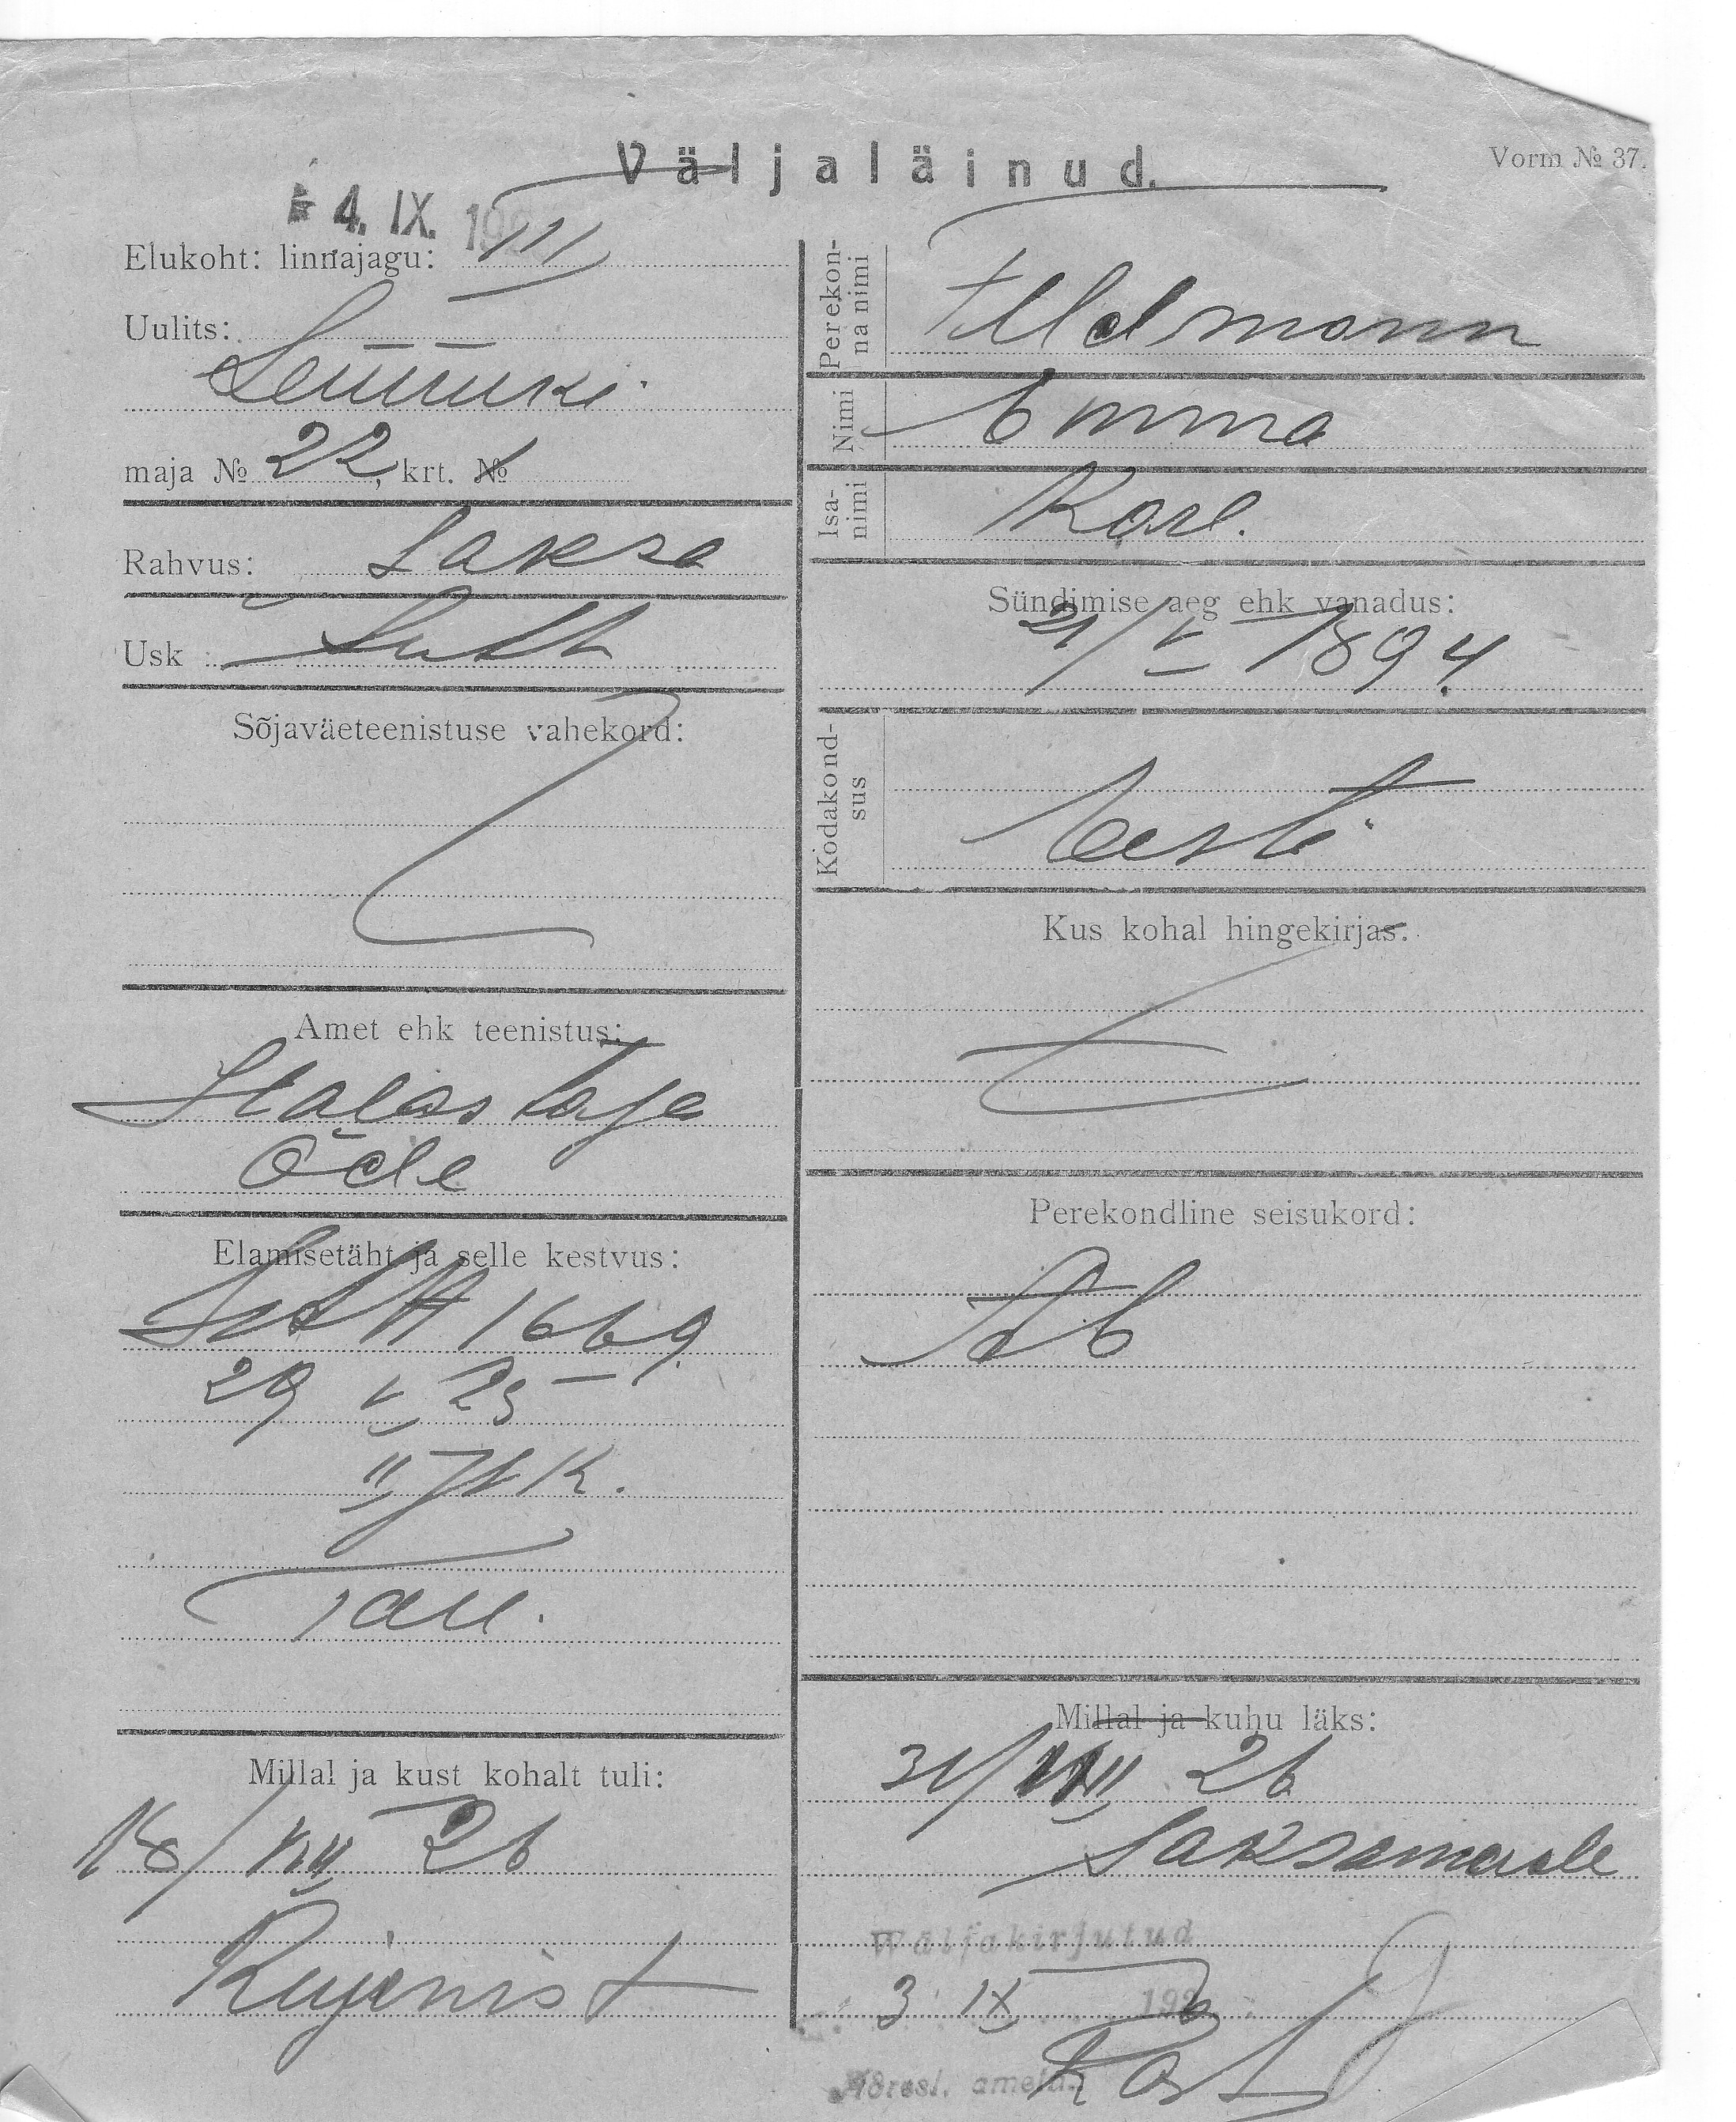 Vorm № 37.
Väljaläinud.
4. IX. 192
Elukoht: linnajagu: III
Uulits:
maja № 22, krt. №
Rahvus: Saksa
Usk: Lutt
Sõjaväeteenistuse vahekord:
Amet ehk teenistus:
Halastaja
Õde
Elamisetäht ja selle kestvus:
1669
29 V 25 —
II Jsk K.
Tall.
Millal ja kust kohalt tuli:
18/VIII 26
Rujenist
Perekonna nimi
Feldmann
Nimi Emma
Isanimi Karl.
Sündimise aeg ehk vanadus:
21/V 1894.
Kodakondsus
Eesti
Kus kohal hingekirjas:
Perekondline seisukord:
Millal ja kuhu läks:
31/VIII 26
Saksamaale
Wäljakirjutud
3 IX 1926
Adresl. ametn.